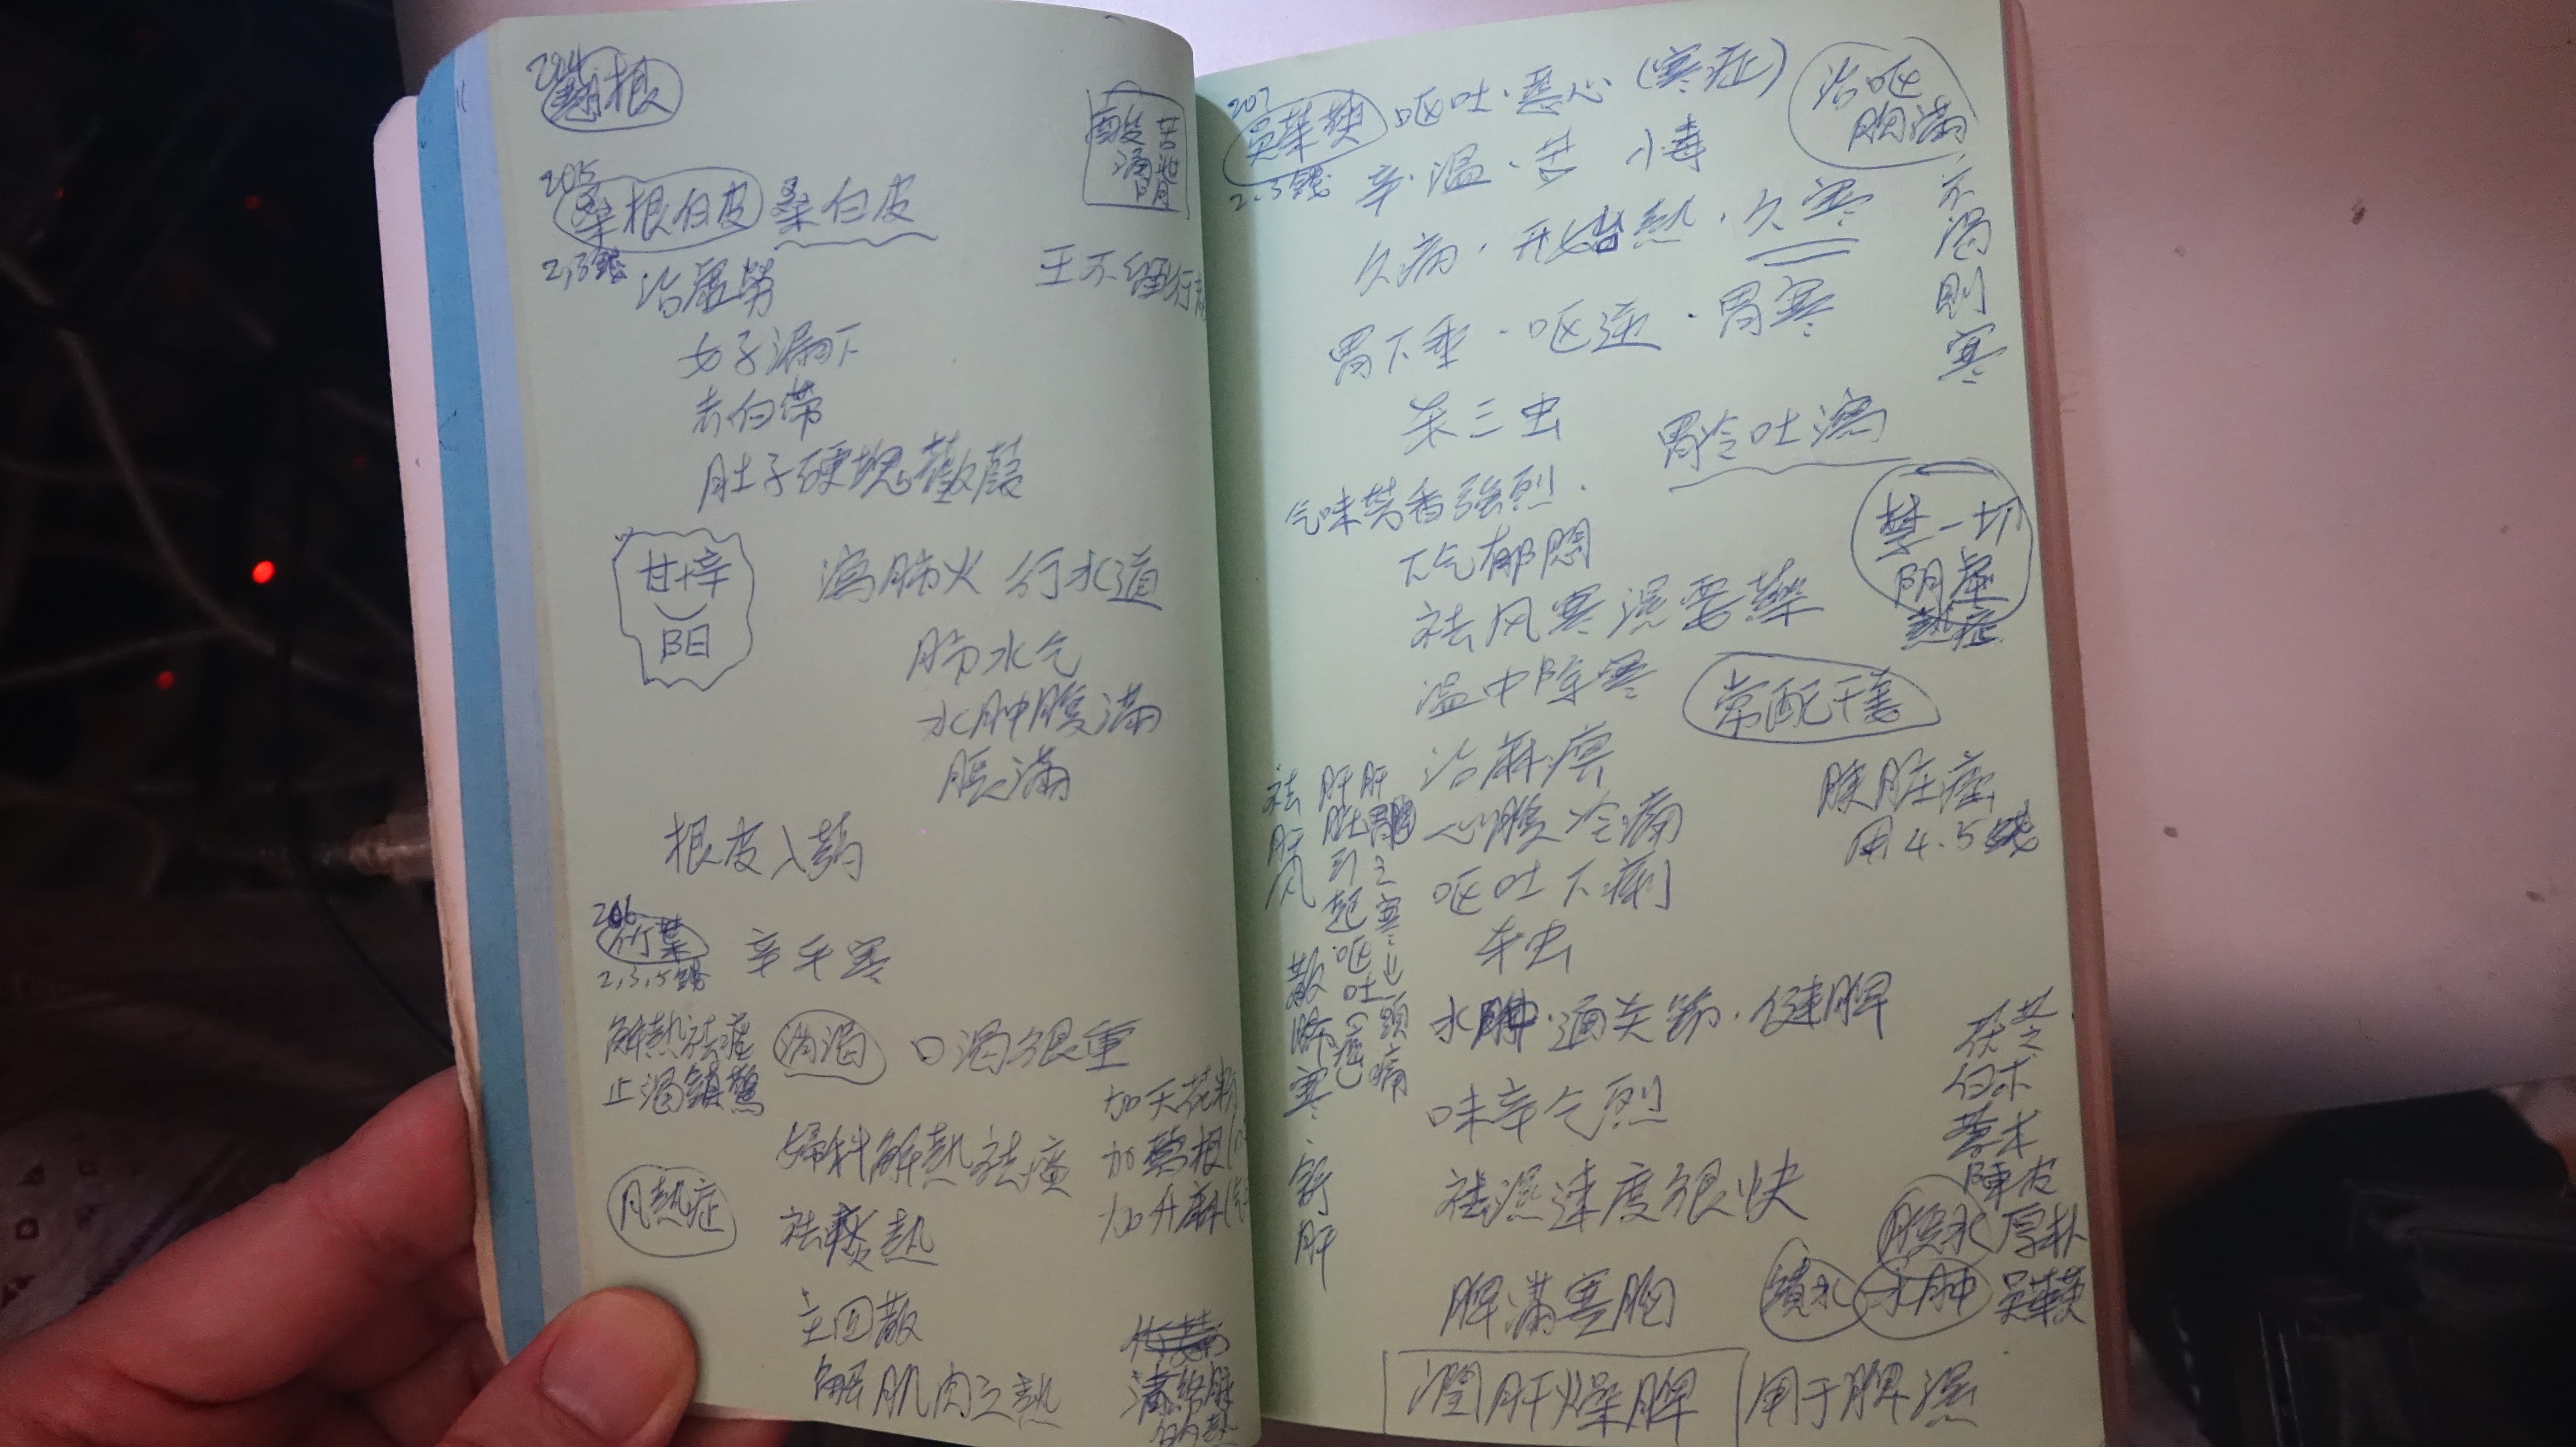 204
根
205
桑根白皮 桑白皮
2,3錢
治虛勞
女子漏下
去白带
肚子硬塊癥瘕
酸
苦
涌
泄
陽
陰
王不留行
甘辛
阳
瀉肺火 行水道
肺水气
水肿腹滿
脹滿
根皮入葯
206
竹葉 辛平寒
2,3,5錢
解熱祛痰
止渴鎮驚
消渴 口渴很重
加天花粉
加葛根
加升麻
婦科解熱祛痰
凡熱症
祛煩熱
主四散
解肌肉之熱
清絡脉
的熱
207
吳茱萸 呕吐·惡心(寒症)
2.3錢 辛·溫·苦 小毒
治呕
胸滿
不渴則寒
久病·开始熱·久寒
胃下垂·呕逆·胃寒
杀三虫 胃冷吐瀉
气味芳香強烈.
下气郁悶
禁一切
阴虛
熱症
祛风寒濕要藥
溫中除寒 常配干姜
治麻痹
胰脏癌
用4.5錢
心腹冷痛
呕吐下痢
杀虫
水肿·通关節·健脾
味辛气烈
祛濕速度很快
脾滿塞胸
潤肝燥脾 用于脾濕
祛肝风 散脾寒 舒肝
肝脏引起呕吐(癌)
肝胃之寒 頭痛
茯苓
白术
蒼术
陳皮
厚朴
吳茱萸
腹水
積水 水肿